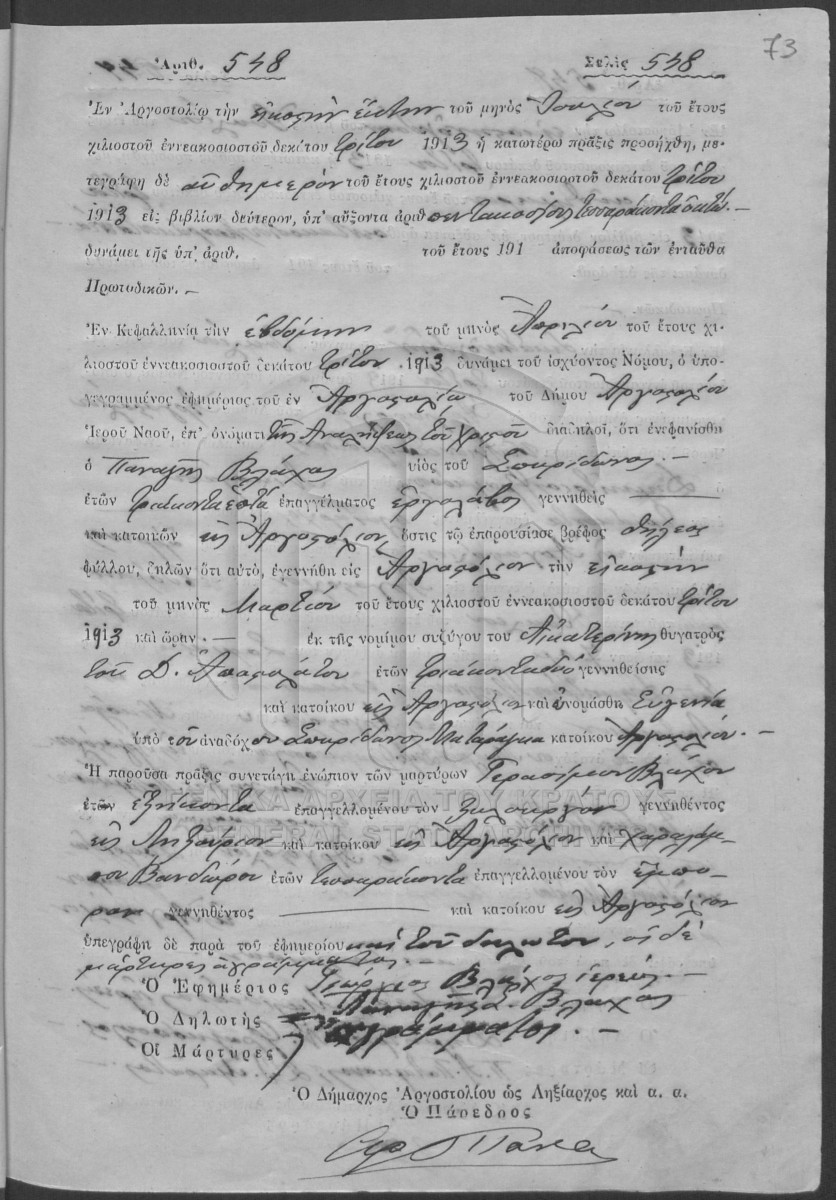 73
Ἀριθ. 548 Σελὶς 548
Ἐν Ἀργοστολίῳ τὴν εἰκοστὴν ἕκτην τοῦ μηνὸς Ἰουλίου τοῦ ἔτους
χιλιοστοῦ ἐννεακοσιοστοῦ δεκάτου τρίτου 1913 ἡ κατωτέρω πρᾶξις προσήχθη, με-
τεγράφη δὲ αὐθημερὸν τοῦ ἔτους χιλιοστοῦ ἐννεακοσιοστοῦ δεκάτου τρίτου
1913 εἰς βιβλίον δεύτερον, ὑπ' αὔξοντα ἀριθ πεντακοσιοστὸν τεσσαράκοντα ὀκτώ.—
δυνάμει τῆς ὑπ' ἀριθ. τοῦ ἔτους 191 ἀποφάσεως τῶν ἐνταῦθα
Πρωτοδικῶν.—
Ἐν Κεφαλληνίᾳ τὴν ἑβδόμην τοῦ μηνὸς Ἀπριλίου τοῦ ἔτους χι-
λιοστοῦ ἐννεακοσιοστοῦ δεκάτου τρίτου 1913 δυνάμει τοῦ ἰσχύοντος Νόμου, ὁ ὑπο-
γεγραμμένος ἐφημέριος τοῦ ἐν Ἀργοστολίῳ τοῦ Δήμου Ἀργοστολίου
Ἱεροῦ Ναοῦ, ἐπ' ὀνόματι τῆς Ἀναλήψεως τοῦ Χριστοῦ διαδηλοῖ, ὅτι ἐνεφανίσθη
ὁ Παναγῆς Βλάχος υἱὸς τοῦ Σπυρίδωνος.—
ἐτῶν τριάκοντα ἑπτὰ ἐπαγγέλματος ἐργολάβος γεννηθεὶς ——
καὶ κατοικῶν εἰς Ἀργοστόλιον, ὅστις τῷ ἐπαρουσίασε βρέφος θήλεος
φύλλου, δηλῶν ὅτι αὐτὸ, ἐγεννήθη εἰς Ἀργοστόλιον τὴν εἰκοστὴν
τοῦ μηνὸς Μαρτίου τοῦ ἔτους χιλιοστοῦ ἐννεακοσιοστοῦ δεκάτου τρίτου
1913 καὶ ὥραν.— ἐκ τῆς νομίμου συζύγου του Αἰκατερίνης θυγατρὸς
τοῦ Δ. Ἀποστολάτου ἐτῶν τριάκοντα δύο γεννηθείσης
καὶ κατοίκου εἰς Ἀργοστόλιον καὶ ὀνομάσθη Εὐγενία
ὑπὸ τοῦ ἀναδόχου Σπυρίδωνος Ματαράγκα κατοίκου Ἀργοστολίου.—
Ἡ παροῦσα πρᾶξις συνετάγη ἐνώπιον τῶν μαρτύρων Γερασίμου Βλάχου
ἐτῶν ἑξήκοντα ἐπαγγελλομένου τὸν ξυλουργὸν γεννηθέντος
εἰς Ληξούριον καὶ κατοίκου εἰς Ἀργοστόλιον καὶ Χαραλάμ-
που Βανδώρου ἐτῶν τεσσαράκοντα ἐπαγγελλομένου τὸν ἔμπο-
ρον γεννηθέντος —— καὶ κατοίκου εἰς Ἀργοστόλιον
ὑπεγράφη δὲ παρὰ τοῦ ἐφημερίου καὶ τοῦ δηλωτοῦ, οἱ δὲ
μάρτυρες ἀγράμματοι.—
Ὁ Ἐφημέριος Γεώργιος Βλάχος ἱερεύς.—
Ὁ Δηλωτὴς Παναγῆς Σ. Βλάχος
Οἱ Μάρτυρες ἀγράμματοι.—
Ὁ Δήμαρχος Ἀργοστολίου ὡς Ληξίαρχος καὶ α. α.
Ὁ Πάρεδρος
ΓΕΝΙΚΑ ΑΡΧΕΙΑ ΤΟΥ ΚΡΑΤΟΥΣ
GENERAL STATE ARCHIVES